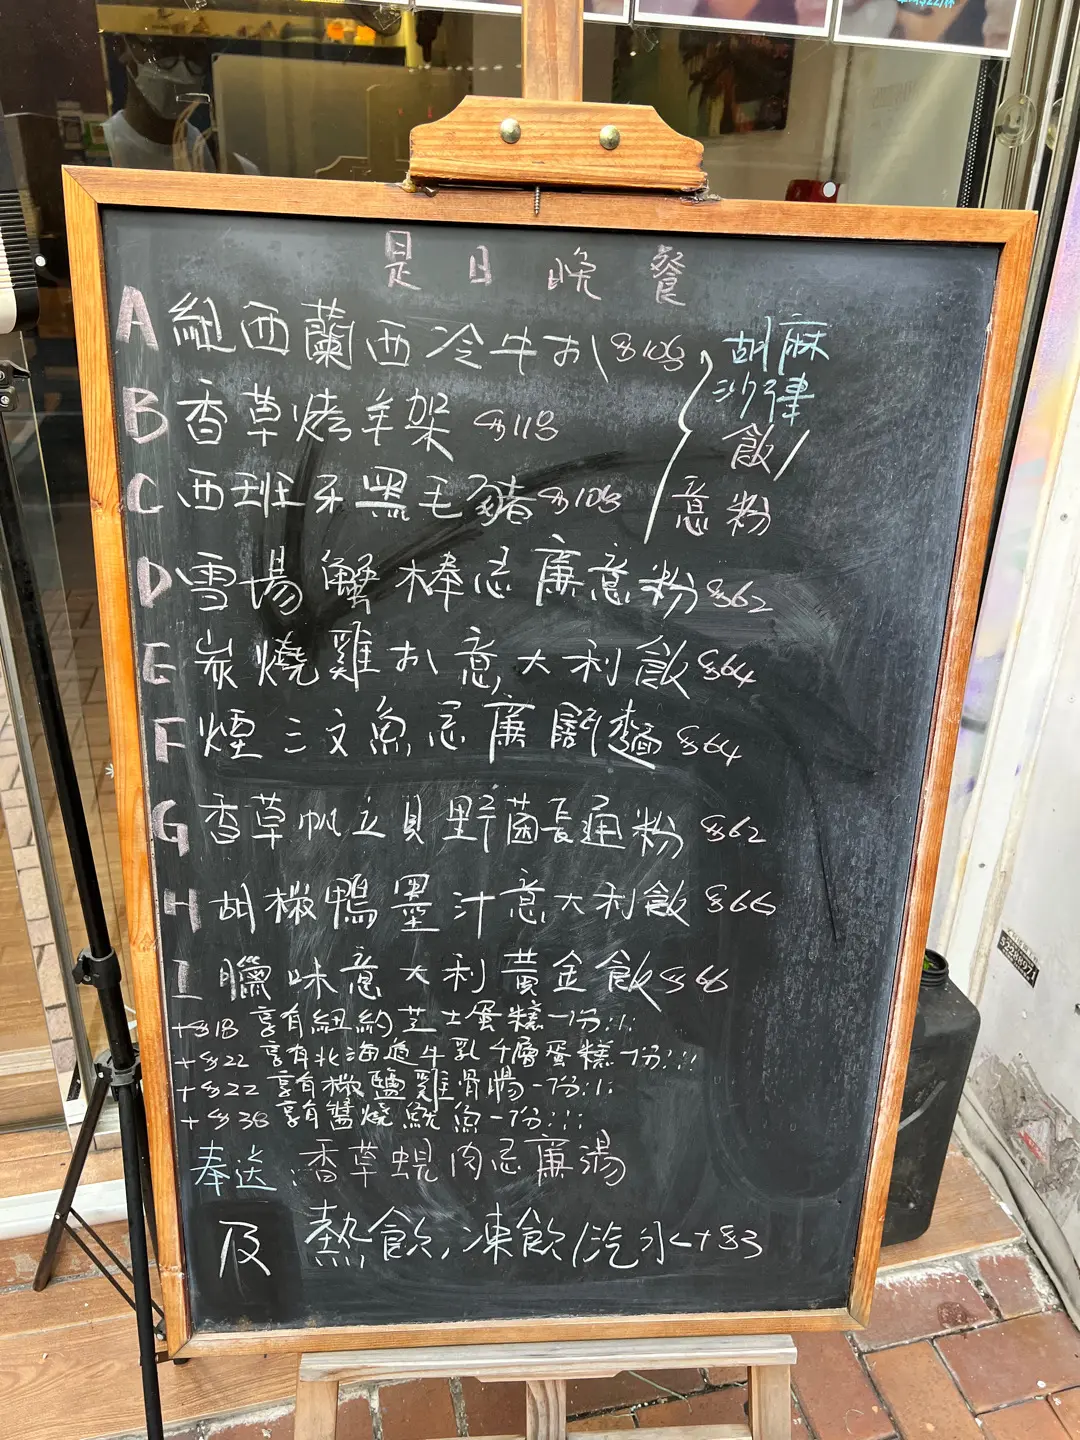 是日晚餐
A 紐西蘭西冷牛扒 $108
B 香草烤羊架 $118
C 西班牙黑毛豬 $108
胡麻
沙律
飯/
意粉
D 雪場蟹棒忌廉意粉 $62
E 炭燒雞扒意大利飯 $64
F 煙三文魚忌廉闊麵 $64
G 香草帆立貝野菌長通粉 $62
H 胡椒鴨墨汁意大利飯 $66
I 臘味意大利黃金飯 $66
+$18 享有紐約芝士蛋糕一份!!!
+$22 享有北海道牛乳千層蛋糕一份!!!
+$22 享有椒鹽雞骨腸一份!!!
+$38 享有醬燒魷魚一份!!!
奉送:香草蜆肉忌廉湯
及 熱飲,凍飲/汽水+$3